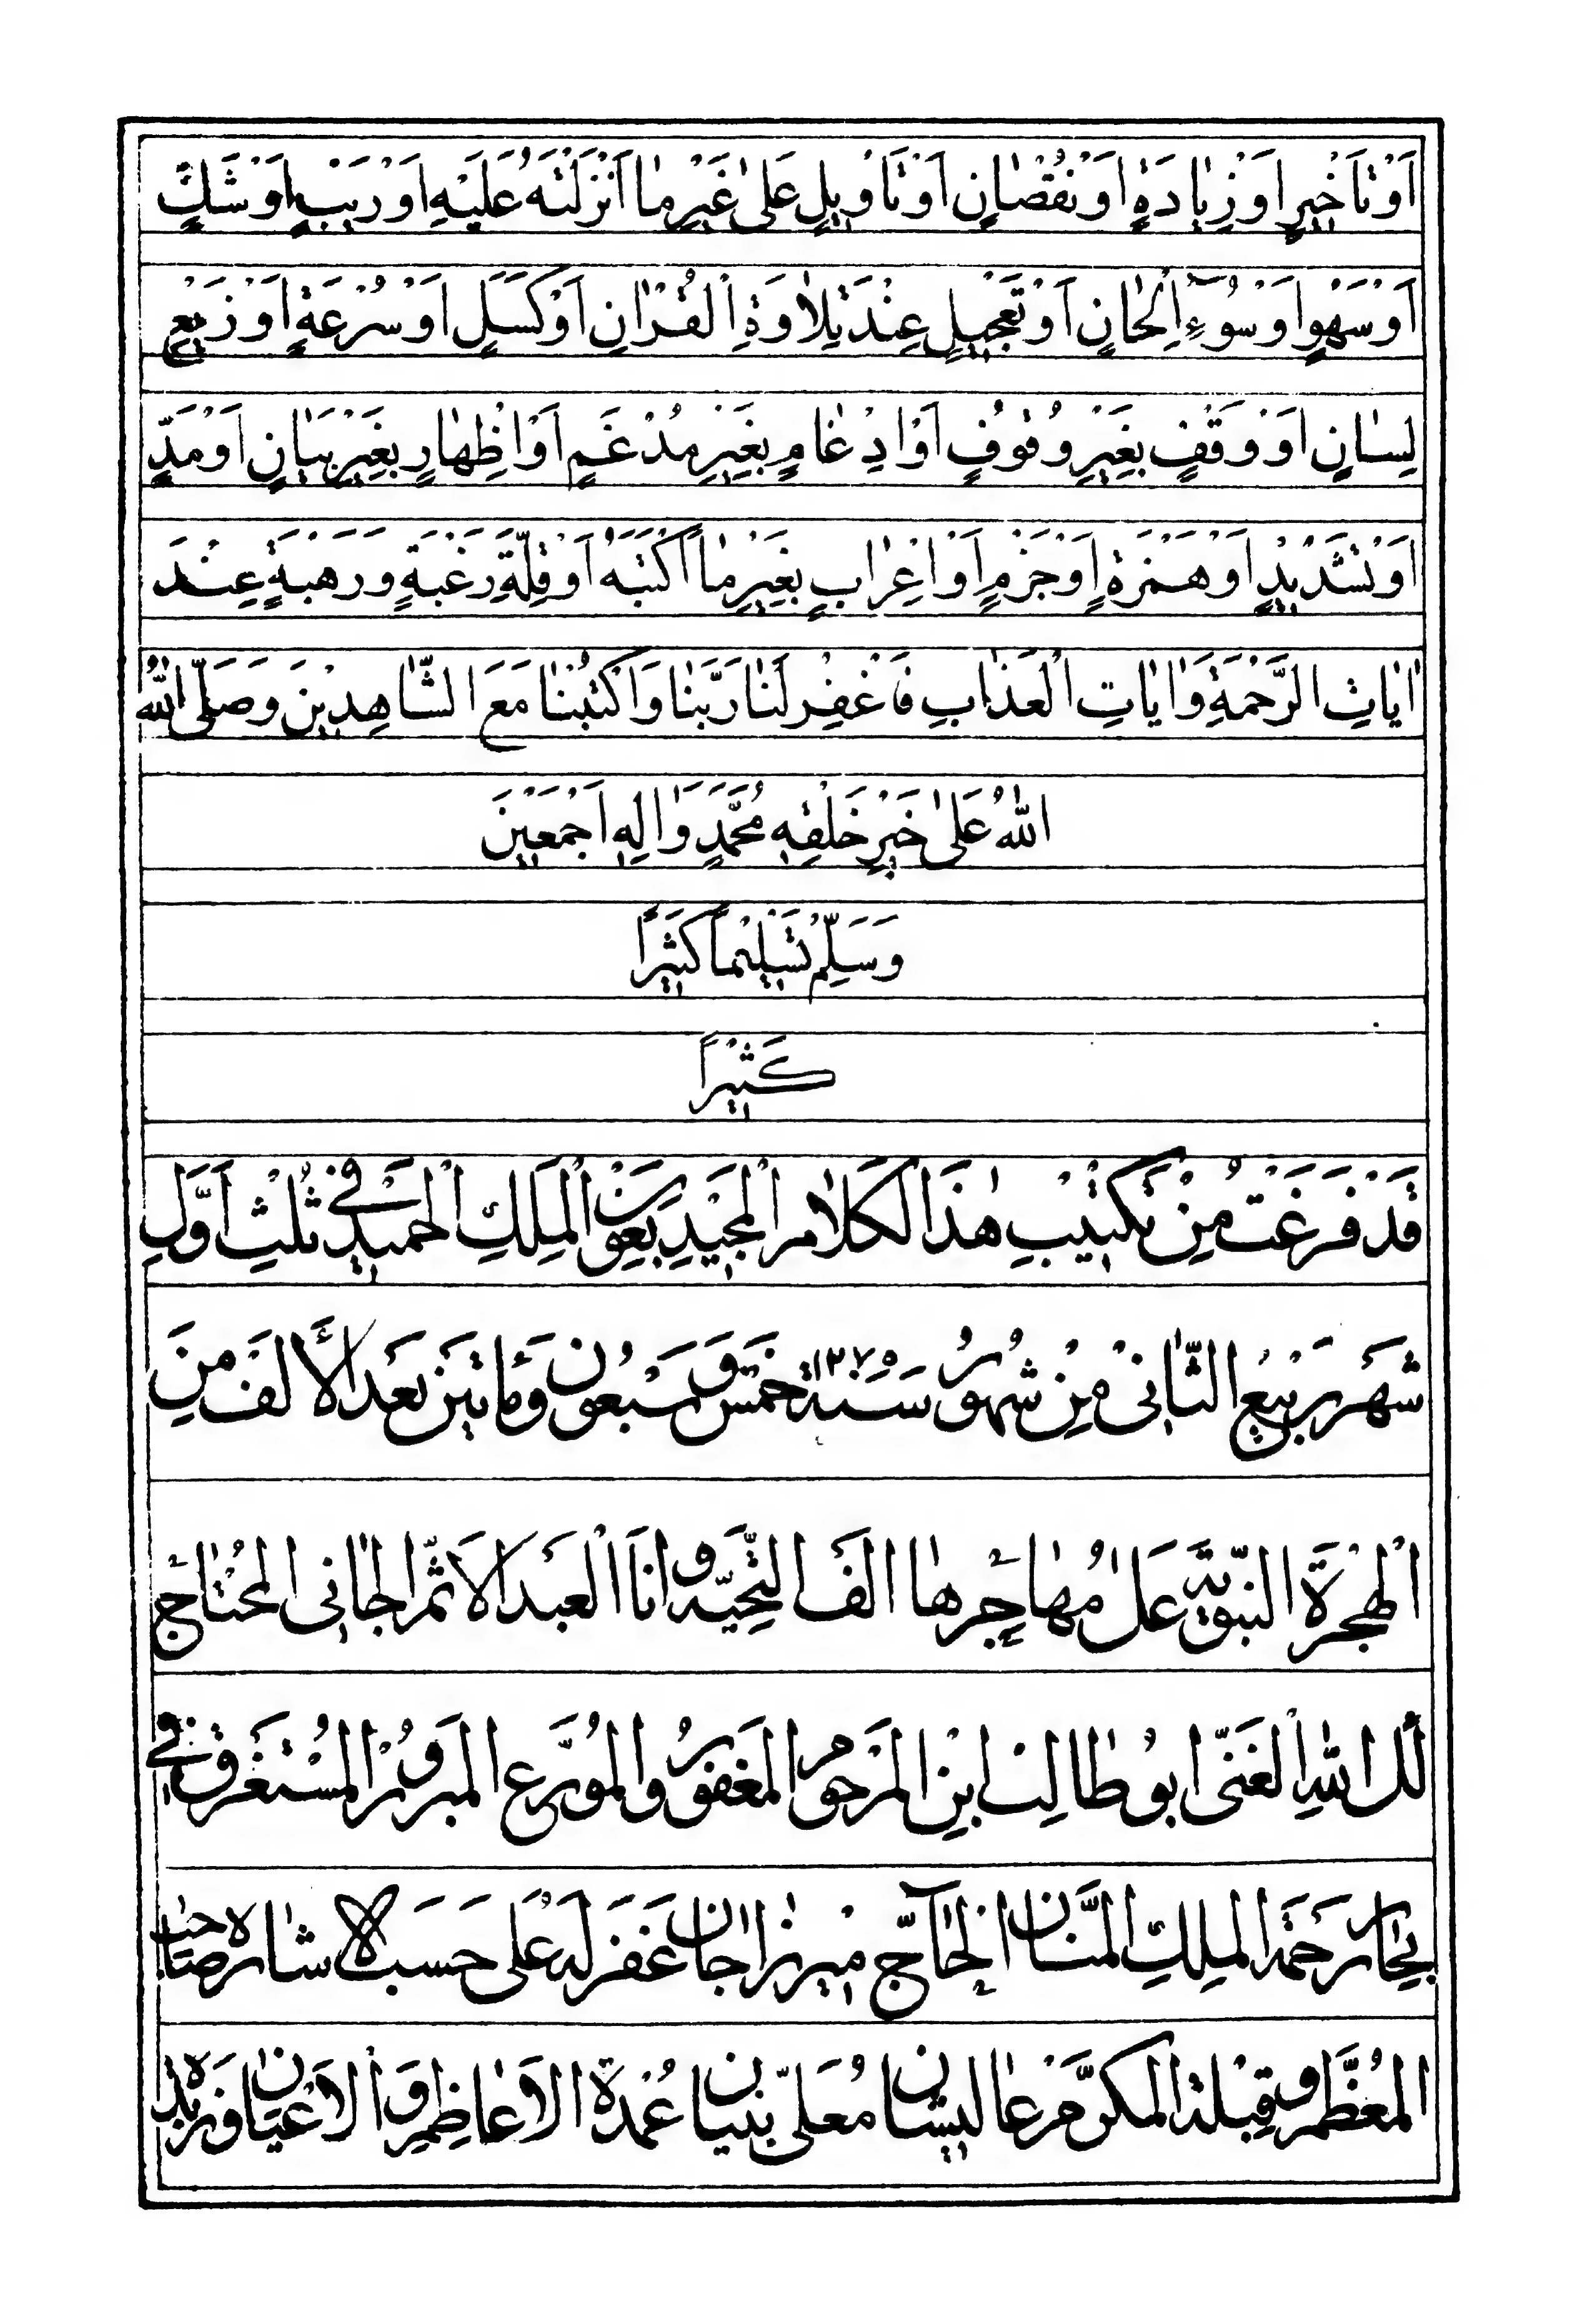 اَوْ تَاْخٖيرٍ اَوْ زِيٰادَةٍ اَوْ نُقْصٰانٍ اَوْ تَاْوٖيلٍ عَلىٰ غَيْرِ مٰا اَنْزَلْتَهُ عَلَيْهِ اَوْ رَيْبٍ اَوْ شَكٍّ
اَوْ سَهْوٍ اَوْ سُوٓءِ اِلْحٰانٍ اَوْ تَعْجٖيلٍ عِنْدَ تِلٰاوَةِ اْلقُرْاٰنِ اَوْ كَسَلٍ اَوْ سُرْعَةٍ اَوْ زَيْغِ
لِسٰانٍ اَوْ وَقْفٍ بِغَيْرِ وُقُوفٍ اَوْ اِدْغٰامٍ بِغَيْرِ مُدْغَمٍ اَوْ اِظْهٰارٍ بِغَيْرِ بَيٰانٍ اَوْ مَدٍّ
اَوْ تَشْدٖيدٍ اَوْ هَمْزَةٍ اَوْ جَزْمٍ اَوْ اِعْرٰابٍ بِغَيْرِ مٰا كَتَبَهُ اَوْ قِلَّةِ رَغْبَةٍ وَرَهْبَةٍ عِنْدَ
اٰيٰاتِ الرَّحْمَةِ وَاٰيٰاتِ الْعَذٰابِ فَاغْفِرْ لَنٰا رَبَّنٰا وَاكْتُبْنٰا مَعَ الشّٰاهِدٖينَ وَصَلَّى اللّٰهُ
اللّٰهُ عَلىٰ خَيْرِ خَلْقِهٖ مُحَمَّدٍ وَاٰلِهٖ اَجْمَعٖينَ
وَسَلِّمْ تَسْلٖيمًا كَثٖيرًا
كَثٖيرًا
قَدْ فَرَغْتُ مِنْ تَكْتٖيبِ هٰذَا الْكَلٰامِ الْمَجٖيدِ بِعَوْنِ الْمَلِكِ الْحَمٖيدِ فٖى ثُلُثِ اَوَّلِ
شَهْرِ رَبٖيعُ الثّٰانٖى مِنْ شُهُورِ سَنَة ١٢٧٥ خَمْسَ وَ سَبْعُونَ وَ مَاتَيْن بَعْدَ الْأَلْفَ مِنَ
الْهِجْرَةِ النَّبَوِيَّة عَلىٰ مُهٰاجِرِهٰا اَلْفَ التَّحِيَّه وَ اَنَا الْعَبْدَ الْاَثِمَ الْجٰانٖى الْمُحْتٰاج
لَلَ اللّٰهِ الْغَنّٖى اَبُو طٰالِبْ ابْنِ الْمَرْحُومِ الْمَغْفُورُ وَالْمُوَرَّع الْمَبْرُورْ الْمُسْتَغْرَقْ فٖى
بِحٰارِ رَحْمَةِ الْمَلِكِ الْمَنَّانِ اَلْحٰآجّ مٖيرْزٰا جٰان غَفَرَ لَهُ عَلى حَسَبْ الاشٰارَه صٰاحِبْ
الْمُعَظَّمْ وَ قِبْلَهٔ الْمُكَرَّمْ عٰالٖيشَان مُعَلّٖى بُنْيَان عُمْدَة الْاَعٰاظِمِ وَ الْاَعْيٰانِ وَ زُبْدَه